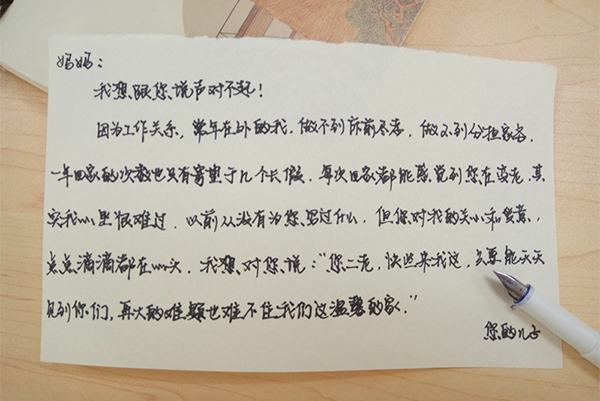 妈妈：
我想跟您说声对不起！
因为工作关系，常年在外的我，做不到床前尽孝，做不到分担家务，
一年回家的次数也只有寥寥于几个长假，每次回家都能感觉到您在变老，其
实我心里很难过，以前从没有为您写过什么，但您对我的关心和
点点滴滴都在心头，我想对您说：“您二老，快些来我这，只要能天天
见到你们，再大的难题也难不住我们这温馨的家。”
您的儿子